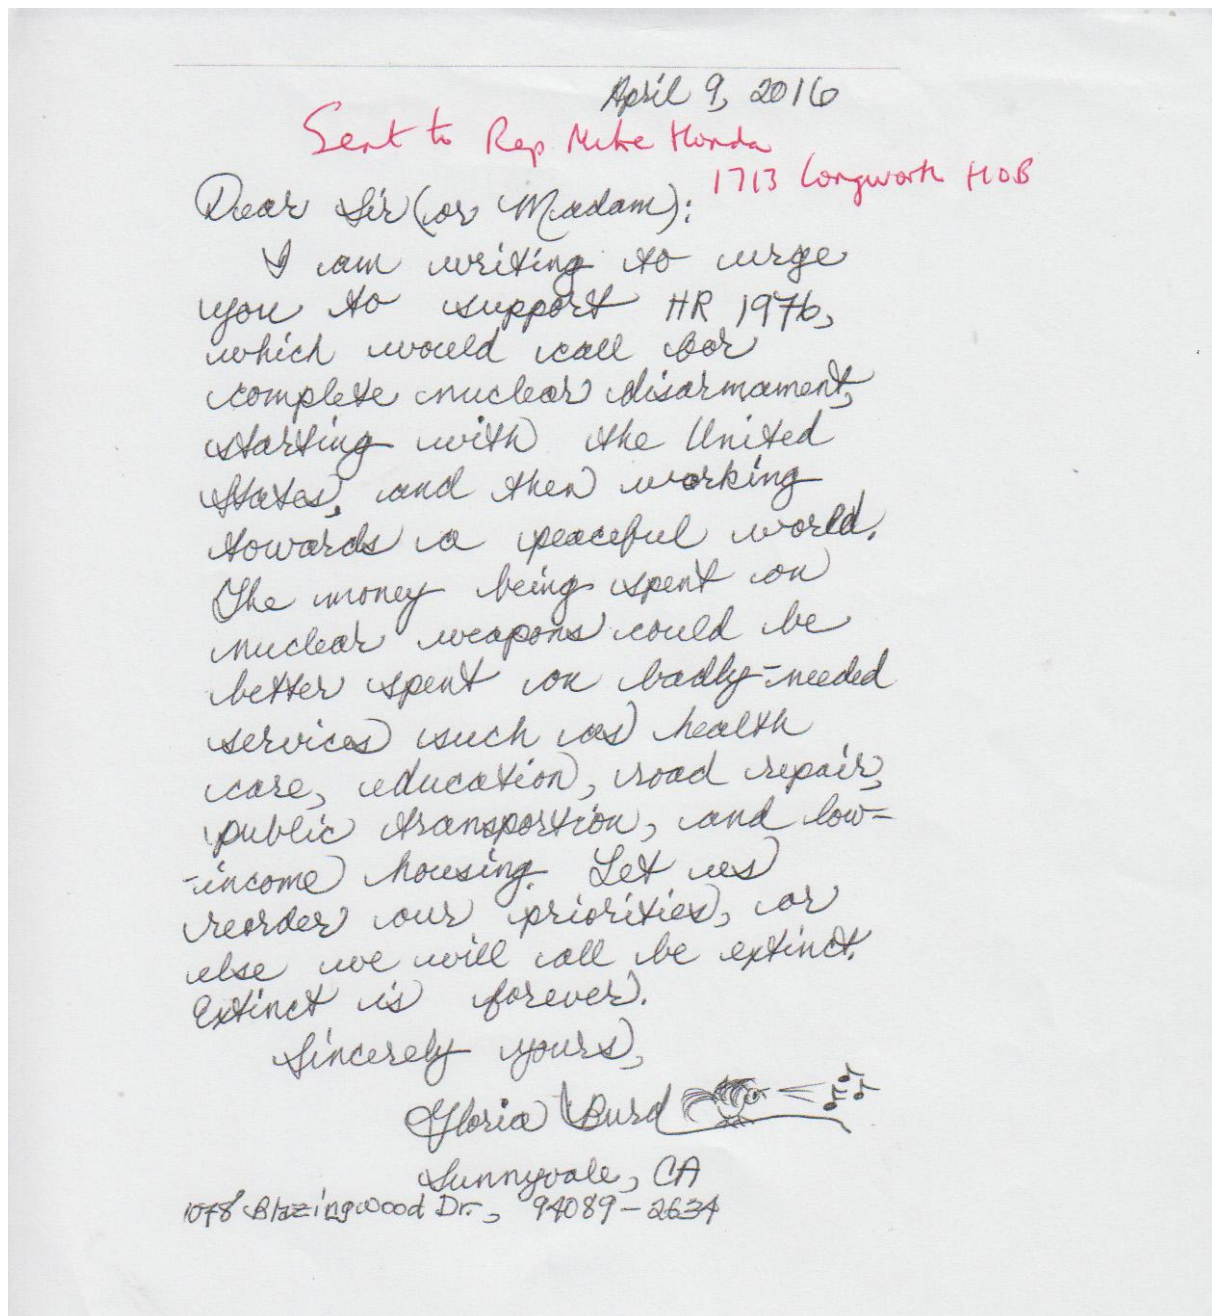 April 9, 2016
Sent to Rep Mike Honda
1713 Longworth HOB
Dear Sir (or Madam):
I am writing to urge
you to support HR 1976,
which would call for
complete nuclear disarmament,
starting with the United
States, and then working
towards a peaceful world.
The money being spent on
nuclear weapons could be
better spent on badly-needed
services such as health
care, education, road repair,
public transportion, and low-
-income housing. Let us
reorder our priorities, or
else we will all be extinct.
Extinct is forever.
Sincerely yours,
Gloria Burd
Sunnyvale, CA
1078 Blazingwood Dr., 94089-2634